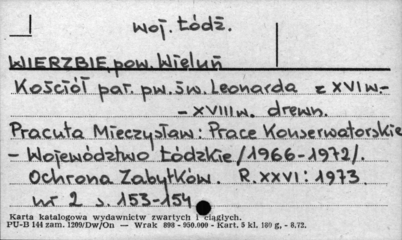 woj. Łódź.
WIERZBIE, pow. Wieluń
Kościół par. pw. św. Leonarda z XVI w.-
- XVIII w. drewn.
Pracuta Mieczysław: Prace Konserwatorskie
- Województwo Łódzkie /1966-1972/.
Ochrona Zabytków. R. XXVI: 1973
nr 2 s. 153-154
Karta katalogowa wydawnictw zwartych i ciągłych.
PU-B 144 zam. 1209/Dw/On — Wrak 898 - 950.000 - Kart. 5 kl. 180 g, - 8.72.